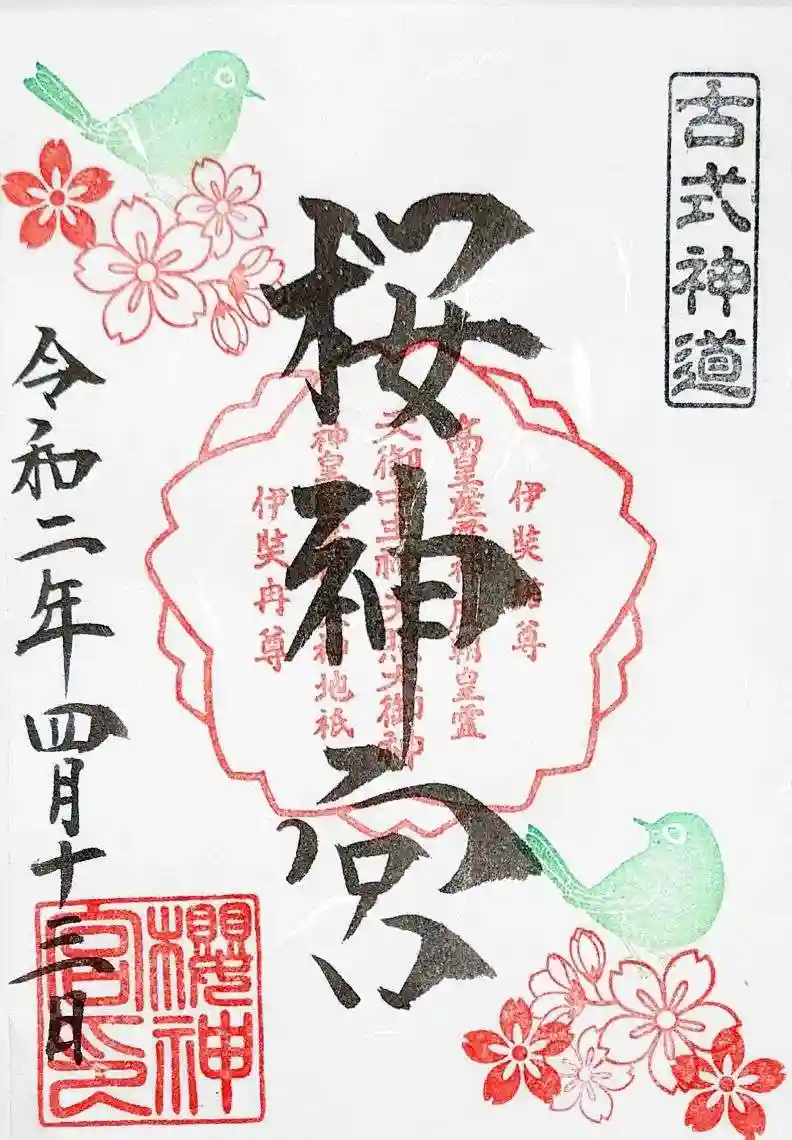 古式神道
桜神宮
伊奘諾尊
高皇産霊神 歴朝皇霊
天御中主神 天照大御神
神皇産霊神 天神地祇
伊奘冉尊
令和二年四月十三日
櫻神
宮印